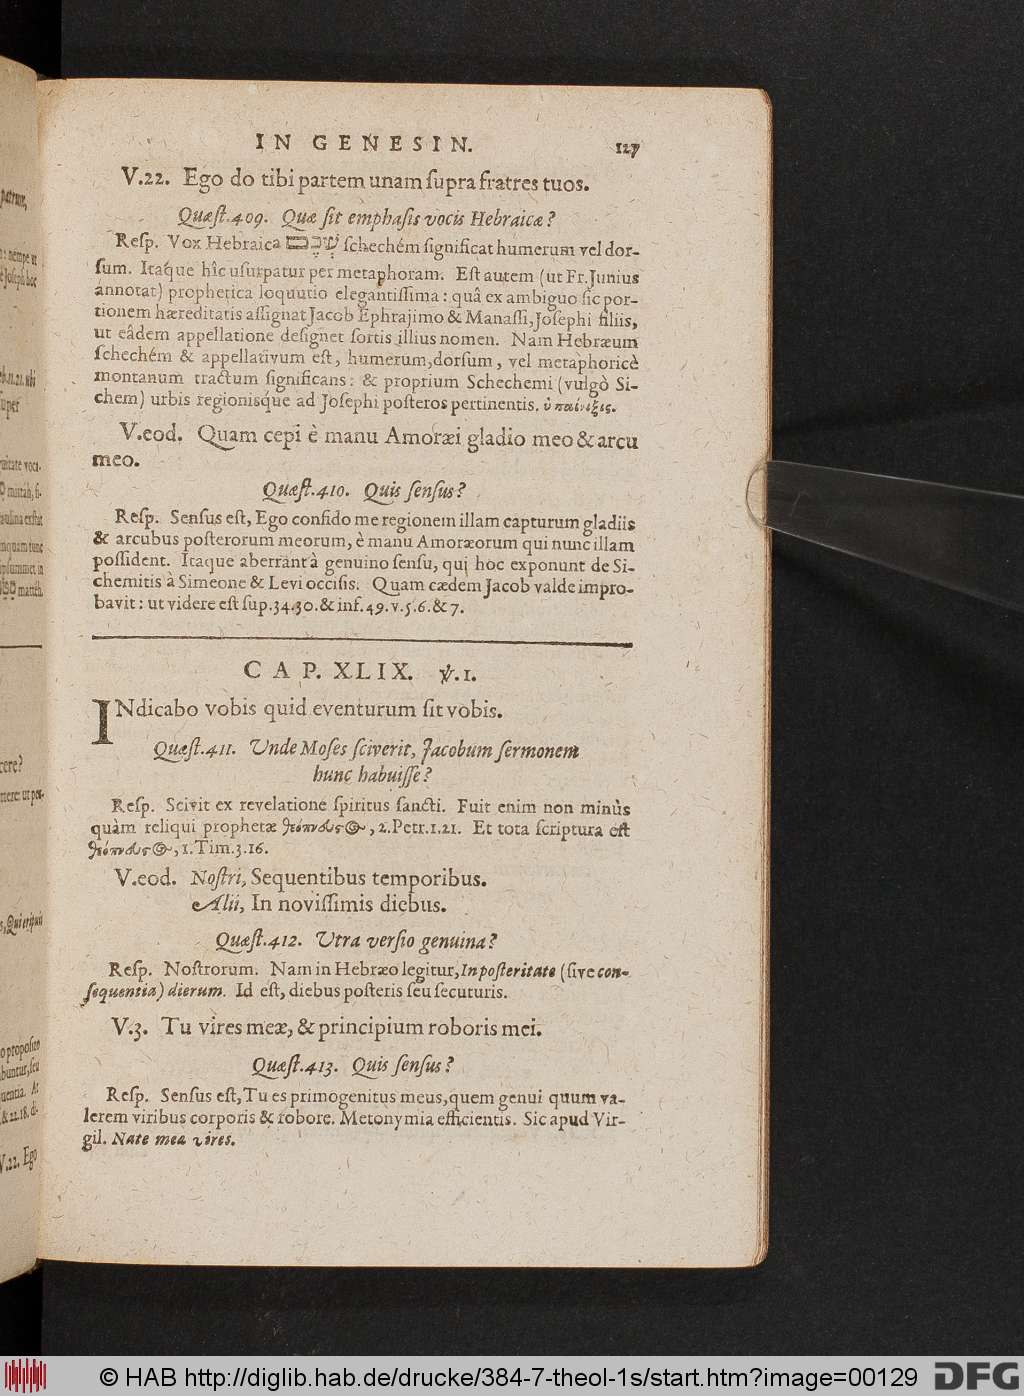 IN GENESIN. 127
V.22. Ego do tibi partem unam ſupra fratres tuos.
Quæſt.409. Quæ ſit emphaſis vocis Hebraicæ?
Reſp. Vox Hebraica ſchechém ſignificat humerum vel dor-
ſum. Itaque hîc uſurpatur per metaphoram. Eſt autem (ut Fr. Junius
annotat) prophetica loquutio elegantiſſima: quâ ex ambiguo ſic por-
tionem hæreditatis aſſignat Jacob Ephrajimo & Manaſſi, Joſephi filiis,
ut eâdem appellatione deſignet ſortis illius nomen. Nam Hebræum
ſchechém & appellativum eſt, humerum, dorſum, vel metaphoricè
montanum tractum ſignificans: & proprium Schechemi (vulgò Si-
chem) urbis regionisque ad Joſephi poſteros pertinentis.
V.eod. Quam cepi è manu Amoræi gladio meo & arcu
meo.
Quæſt.410. Quis ſenſus?
Reſp. Senſus eſt, Ego confido me regionem illam capturum gladiis
& arcubus poſterorum meorum, è manu Amoræorum qui nunc illam
poſſident. Itaque aberrant à genuino ſenſu, qui hoc exponunt de Si-
chemitis à Simeone & Levi occiſis. Quam cædem Jacob valde impro-
bavit: ut videre eſt ſup.34.30. & inf. 49. v.5.6. & 7.
CAP. XLIX. ꝟ.1.
INdicabo vobis quid eventurum ſit vobis.
Quæſt.411. Unde Moſes ſciverit, Jacobum ſermonem
hunc habuiſſe?
Reſp. Scivit ex revelatione ſpiritus ſancti. Fuit enim non minùs
quàm reliqui prophetæ θεόπνευςος, 2.Petr.1.21. Et tota ſcriptura eſt
θεόπνευςος, 1.Tim.3.16.
V.eod. Noſtri, Sequentibus temporibus.
Alii, In noviſſimis diebus.
Quæſt.412. Utra verſio genuina?
Reſp. Noſtrorum. Nam in Hebræo legitur, In poſteritate (ſive con-
ſequentia) dierum. Id eſt, diebus poſteris ſeu ſecuturis.
V.3. Tu vires meæ, & principium roboris mei.
Quæſt.413. Quis ſenſus?
Reſp. Senſus eſt, Tu es primogenitus meus, quem genui quum va-
lerem viribus corporis & robore. Metonymia efficientis. Sic apud Vir-
gil. Nate mea vires.
© HAB http://diglib.hab.de/drucke/384-7-theol-1s/start.htm?image=00129
DFG